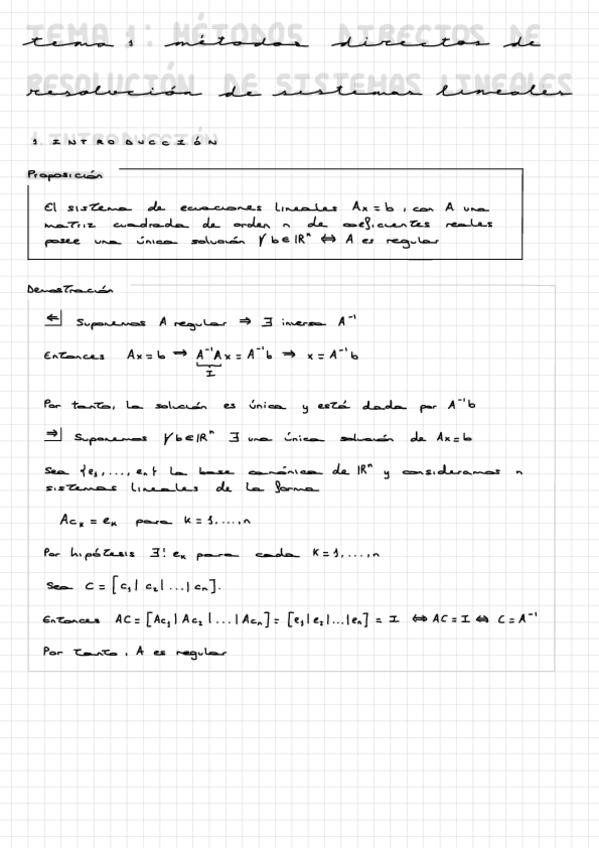 TEMA 1: MÉTODOS DIRECTOS DE
tema 1 métodos directos de
RESOLUCIÓN DE SISTEMAS LINEALES
resolución de sistemas lineales
1. INTRODUCCIÓN
Proposición
El sistema de ecuaciones lineales Ax = b, con A una
matriz cuadrada de orden n de coeficientes reales
posee una única solución ∀b∈ℝⁿ ⇔ A es regular
Demostración
⇐| Suponemos A regular ⇒ ∃ inversa A⁻¹
Entonces Ax = b ⇒ A⁻¹Ax = A⁻¹b ⇒ x = A⁻¹b
I
Por tanto, la solución es única y está dada por A⁻¹b
⇒| Suponemos ∀b∈ℝⁿ ∃ una única solución de Ax=b
Sea {e₁,..., eₙ} la base canónica de ℝⁿ y consideramos n
sistemas lineales de la forma
Acₖ = eₖ para k = 1,...,n
Por hipótesis ∃! eₖ para cada k = 1,...,n
Sea C = [c₁| c₂| ...| cₙ].
Entonces AC = [Ac₁| Ac₂ | ... | Acₙ] = [e₁|e₂|...|eₙ] = I ⇔ AC = I ⇔ C = A⁻¹
Por tanto, A es regular